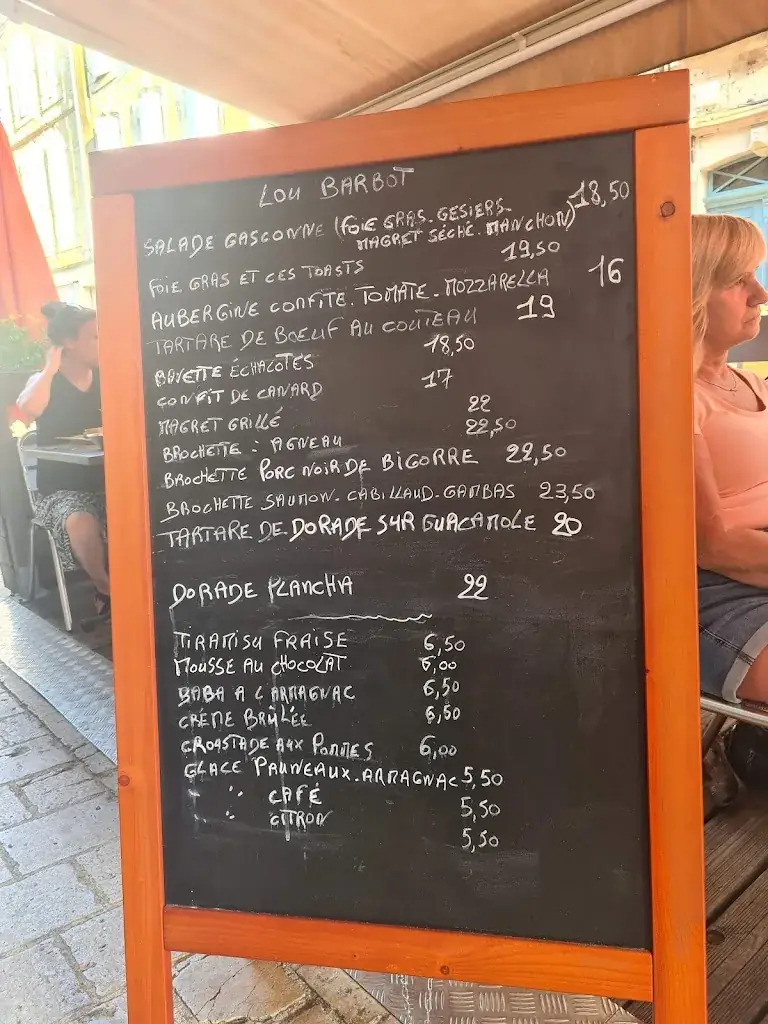 LOU BARBOT
SALADE GASCONNE (FOIE GRAS. GESIERS. 18,50
MAGRET SÉCHÉ. MANCHON)
FOIE GRAS ET CES TOASTS 19,50
AUBERGINE CONFITE. TOMATE. MOZZARELLA 16
TARTARE DE BŒUF AU COUTEAU 19
BAVETTE ÉCHALOTES 18,50
CONFIT DE CANARD 17
MAGRET GRILLÉ 22
BROCHETTE : AGNEAU 22,50
BROCHETTE PORC NOIR DE BIGORRE 22,50
BROCHETTE SAUMON. CABILLAUD. GAMBAS 23,50
TARTARE DE DORADE SUR GUACAMOLE 20
DORADE PLANCHA 22
TIRAMISU FRAISE 6,50
MOUSSE AU CHOCOLAT 6,00
BABA A L'ARMAGNAC 6,50
CRÈME BRÛLÉE 6,50
CROUSTADE AUX POMMES 6,00
GLACE PRUNEAUX. ARMAGNAC 5,50
" CAFÉ 5,50
CITRON 5,50